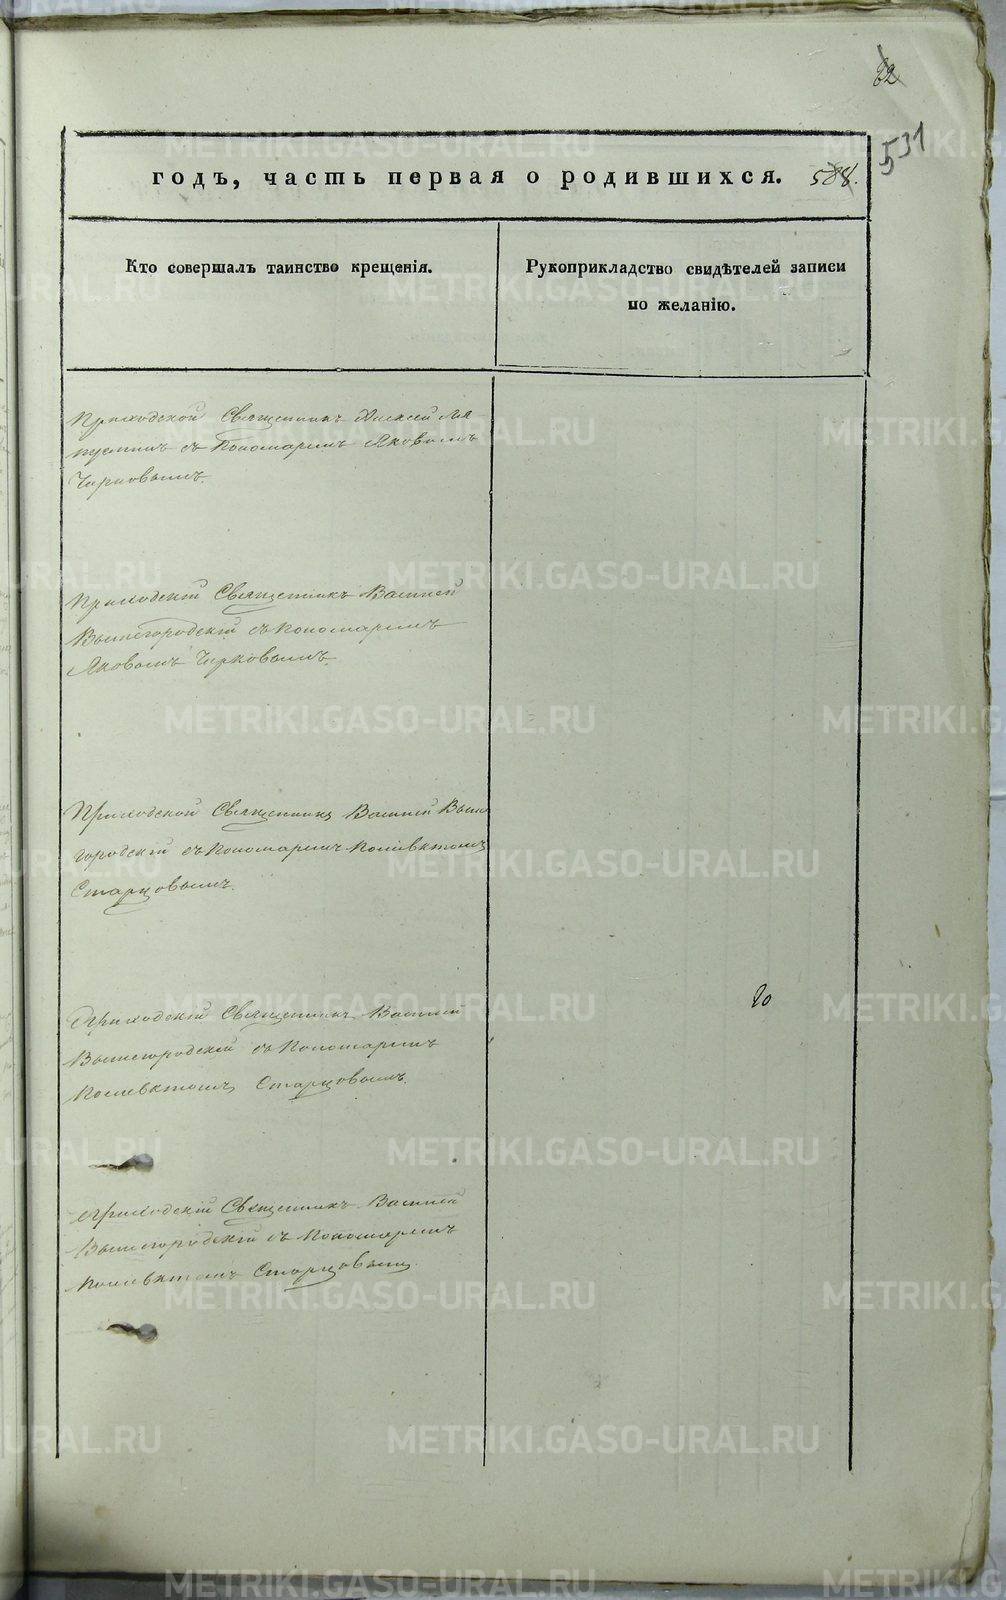 531
годъ, часть первая о родившихся. 588.
Кто совершалъ таинство крещенія.
Рукоприкладство свидѣтелей записи
по желанію.
Приходской Священникъ Алексей
съ Пономаремъ Яковомъ
Чирковымъ.
Приходскій Священникъ Василій
Вышегородскій съ Пономаремъ
Яковомъ Чирковымъ.
Приходской Священникъ Василій Выше
городскій съ Пономаремъ Полиевктомъ
Старцовымъ.
Приходскій Священникъ Василій
Вышегородскій съ Пономаремъ
Полиевктомъ Старцовымъ.
20
Приходскій Священникъ Василій
Вышегородскій съ Пономаремъ
Полиевктомъ Старцовымъ.
METRIKI.GASO-URAL.RU